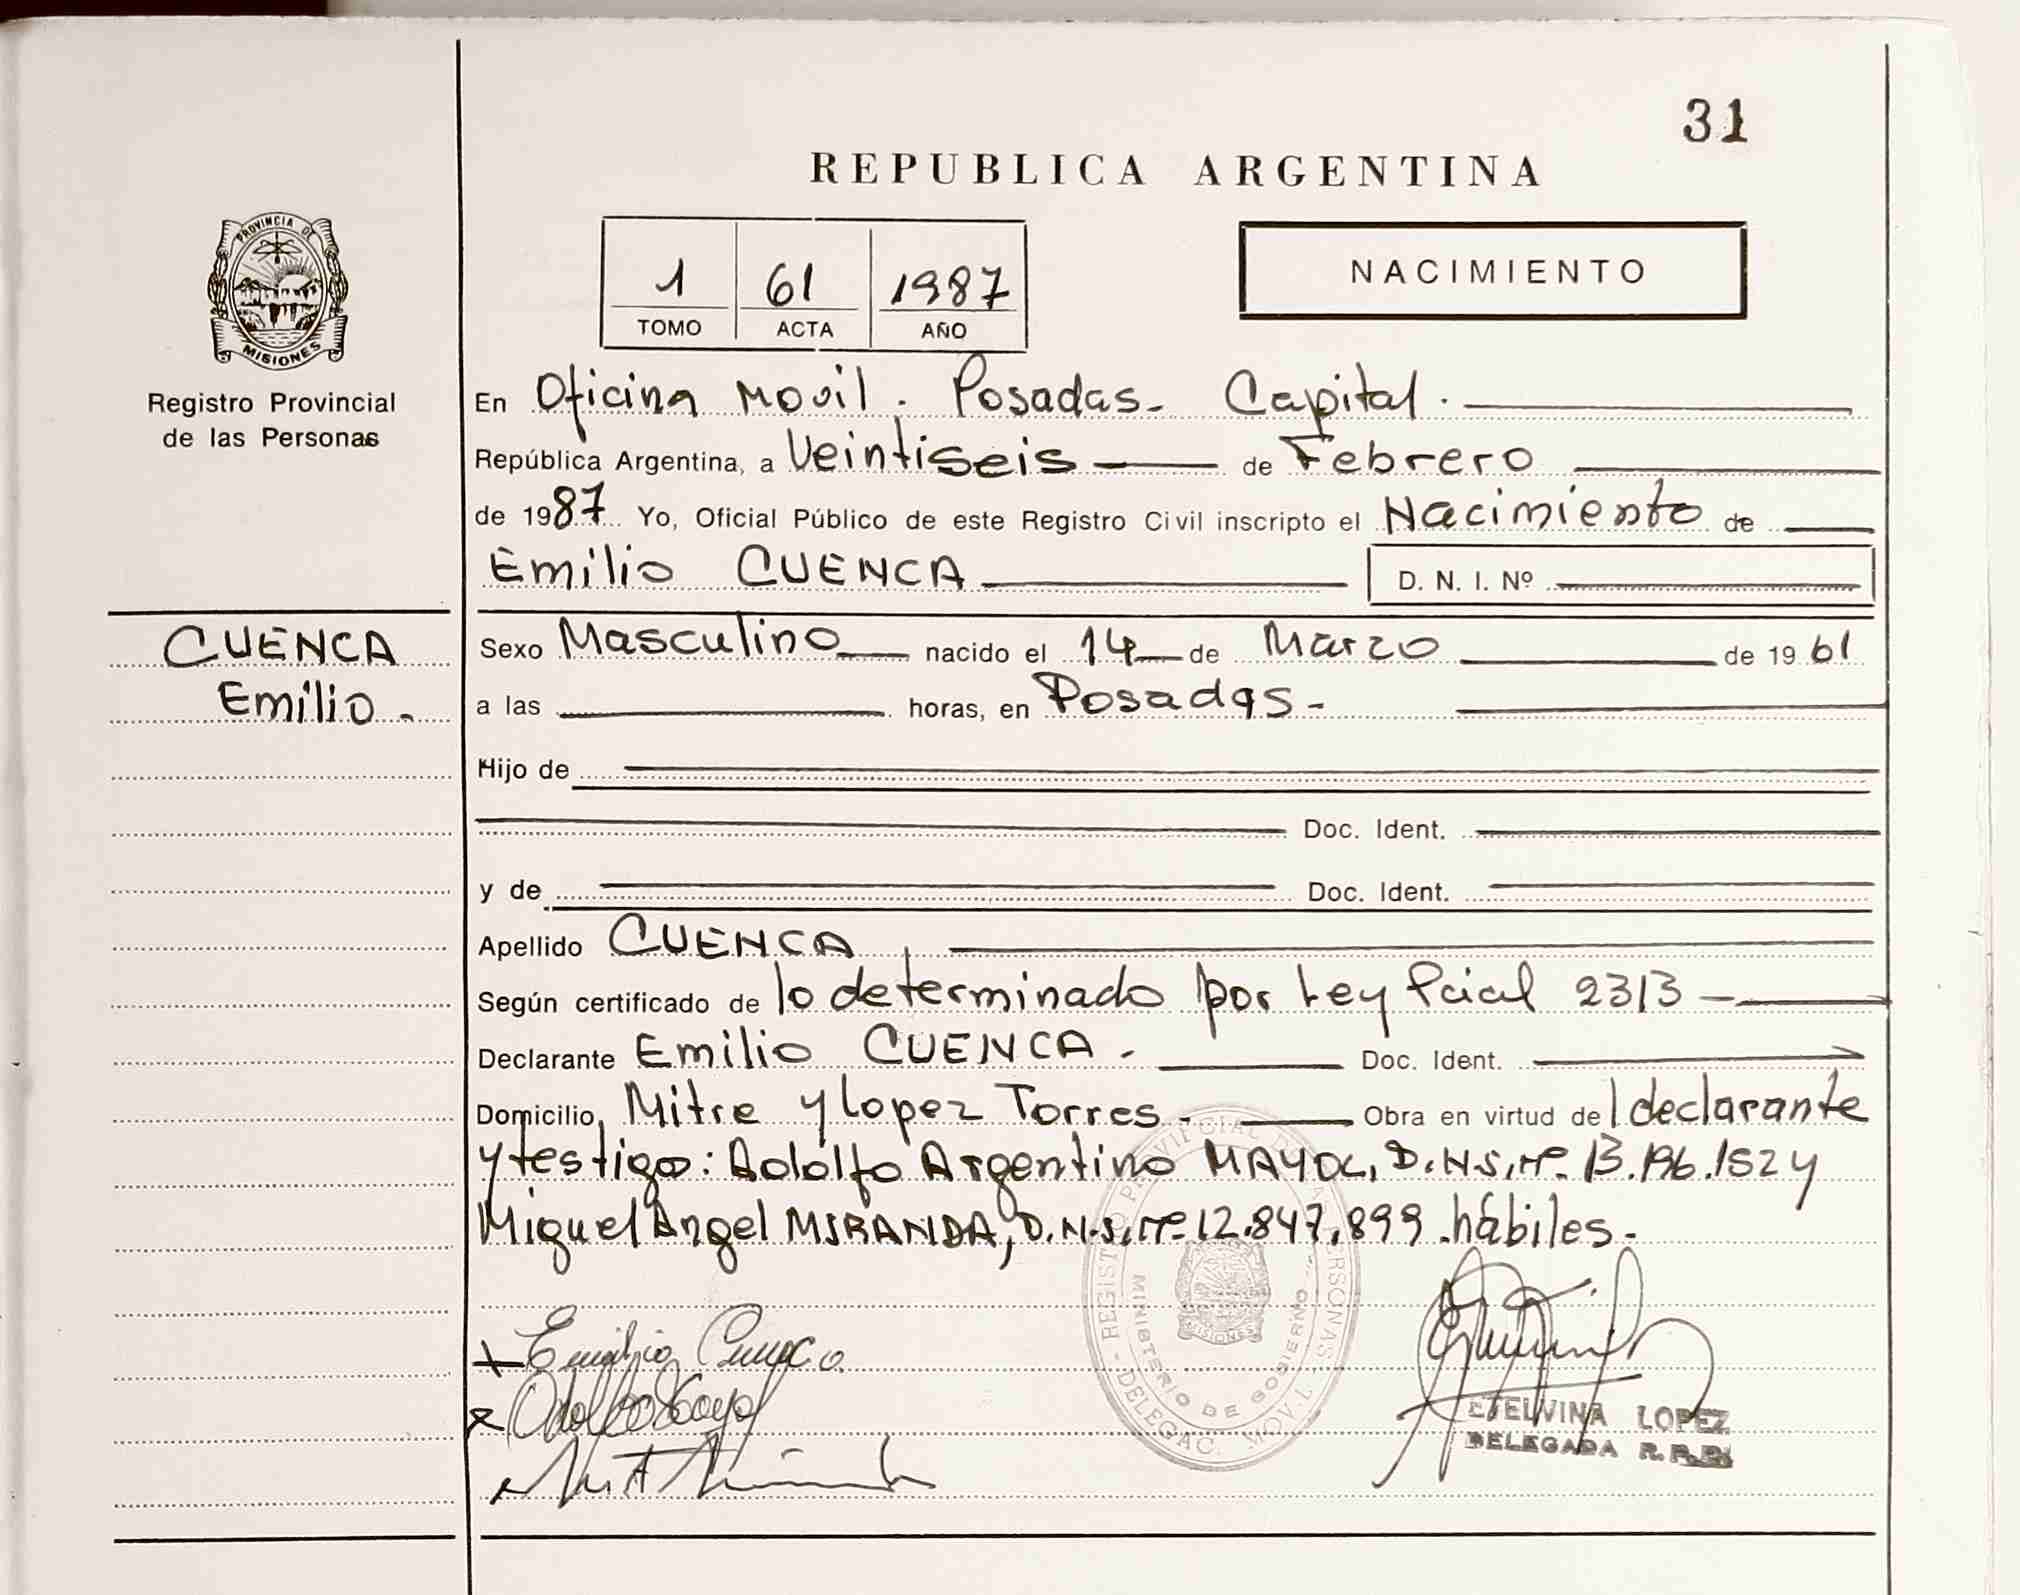 31
REPUBLICA ARGENTINA
PROVINCIA DE
MISIONES
Registro Provincial
de las Personas
1 61 1987
TOMO ACTA AÑO
NACIMIENTO
En Oficina Movil. Posadas- Capital.
República Argentina, a Veintiseis de Febrero
de 1987 Yo, Oficial Público de este Registro Civil inscripto el Nacimiento de
Emilio CUENCA D. N. I. Nº
CUENCA
Emilio.
Sexo Masculino nacido el 14 de Marzo de 1961
a las horas, en Posadas-
Hijo de
Doc. Ident.
y de Doc. Ident.
Apellido CUENCA
Según certificado de lo determinado por Ley Pcial 2313
Declarante Emilio CUENCA. Doc. Ident.
Domicilio, Mitre y Lopez Torres. Obra en virtud de l declarante
y testigo: Adolfo Argentino MAYOL, D.N.I. Nº 13.196.152 y
Miguel Angel MIRANDA, D.N.I. Nº 12.847.899 hábiles.
Emilio Cuenca
REGISTRO PROVINCIAL DE LAS PERSONAS
MINISTERIO DE GOBIERNO
MISIONES
DELEGAC. MOVIL
ETELVINA LOPEZ
DELEGADA R.P.P.